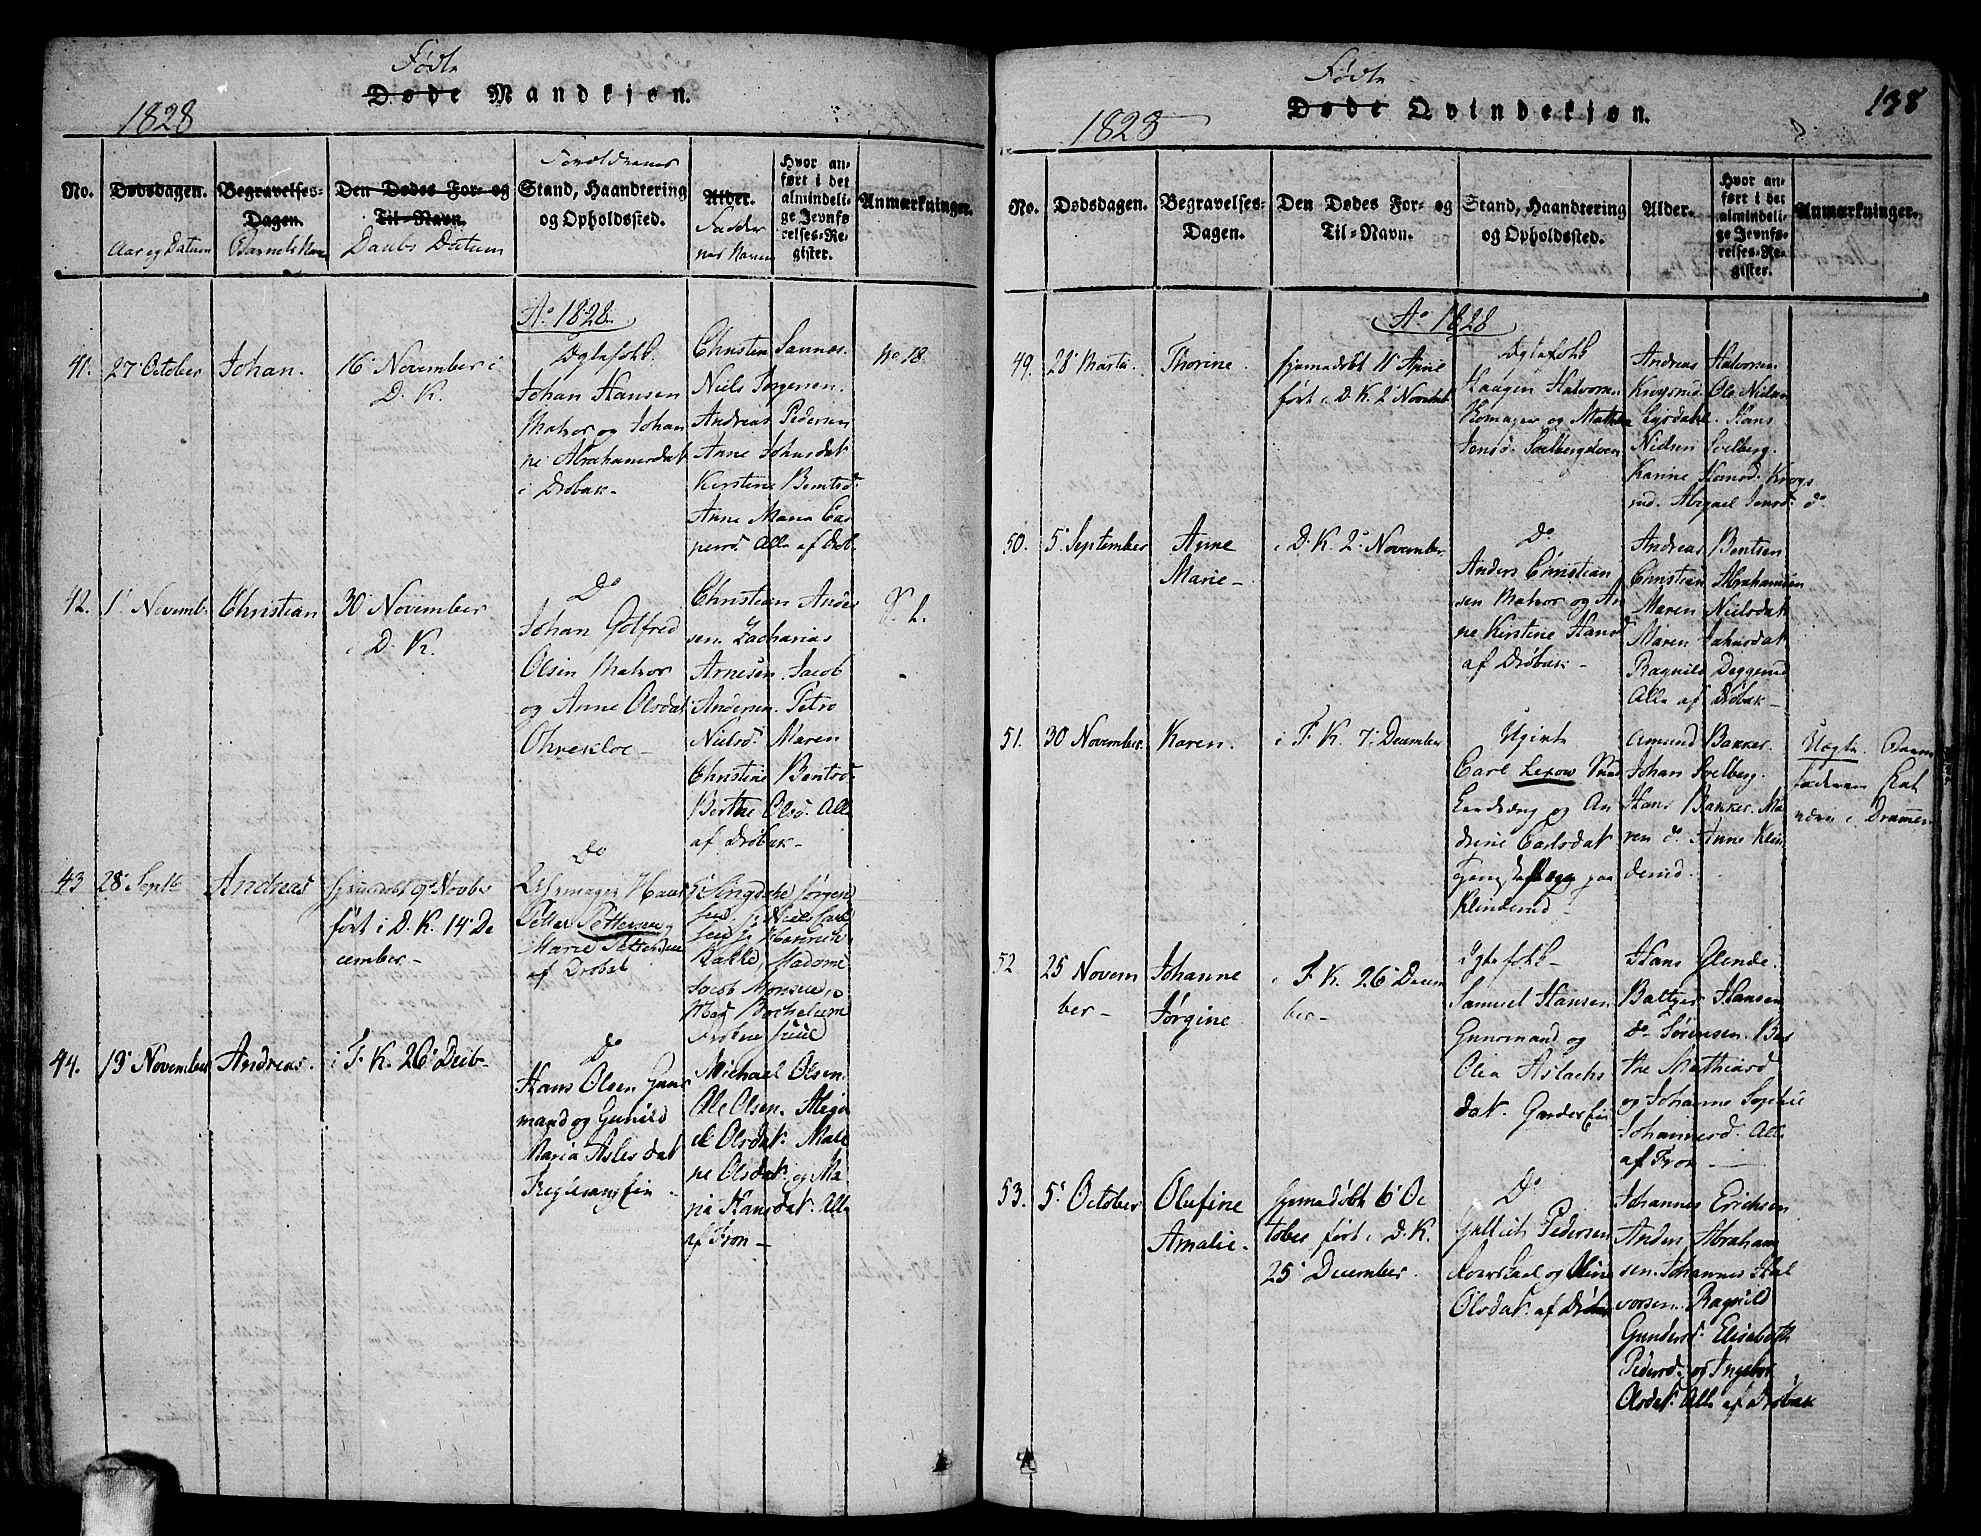 Fødte
Døde Mandkjøn.
1828
No.
Dødsdagen.
Aar og Datum
Begravelses-
Dagen.
Barnets Navn
Den Dødes For- og
Til-Navn.
Daabs Datum
Forældrenes
Stand, Haandtering
og Opholdssted.
Alder.
Fadder
nes Navne
Hvor an-
ført i det
almindeli-
ge Jevnfø
relses-Re-
gister.
Anmærkninger.
Ao. 1828.
41.
27 October
Johan.
16 November i
D. K.
Ægtefolk.
Johan Hansen
Matros og Johan
ne Abrahamsdat
i Drøbak-
Christen Sannes.
Niels Jørgensen.
Andreas Pedersen
Anne Johnsdat
Kirstine Bentsd.
Anne Maria Cas
persd. Alle af Drb.
No 18.
42.
1 Novemb.
Christian
30 November
i D. K.
Do
Johan Gotfred
Olsen Matros
og Anne Olsdat
Christian Ander
sen. Zacharias
Arnesen. Jacob
Andersen. Petro
Nielsd. Maren
Christine Bentsd.
Berthe Olsd. Alle
af Drøbak-
43
28 Septb
Andreas
Novbr
ført i D. K. 14 De
cember-
Do
Petter Pettersen
Marie Pettersen
af Drøbak
Jørgen
Madame
Jacob Monsen,
44.
19 November
Andreas.
i F. K. 26 Decb-
Do
Hans Olsen Gaar
mand og Gunild
Maria Aslesdat
Michael Olsen.
Ole Olsen.
Olsdat. Mali
ne Olsdat. og Ma
ria Hansdat. Alle
af Fron-
Fødte
Døde Qvindekjøn.
138
1828
No.
Dødsdagen.
Begravelses-
Dagen.
Den Dødes For- og
Til-Navn.
Stand, Haandtering
og Opholdssted.
Alder.
Hvor an-
ført i det
almindeli-
ge Jevnfø-
relses-Re-
gister.
Anmærkninger.
Ao 1828
49.
28 Martii
Thorine.
hjemmedøbt 11 April
ført i D. K. 2 Novemb
Ægtefolk
Haagen Halvorsen
Komager og Mathea
Jensd. Svelbergelven
Andreas Halvorsen
Krogsrud. Ole Nielsen
Hans
Nielsen Svelberg.
Karine Hansd. Krogs
rud. Abigael Jensd. do
50.
5 September
Anne
Marie-
i D. K. 2 November
Do
Anders Christian
sen Matros og An
ne Kirstine Hansd
af Drøbak-
Andreas Bentsen
Christian Abrahamsen
Maren Nielsdat
Maren Johnsdat
Ragnild Deggerud
Alle af Drøbak-
51.
30 November.
Karen.
i F. K. 7 December
Uægte
Carl Lexow
og An
drine Carlsdat
paa
Klinderud
Amund Bakker.
Johan Svelberg.
Hans Bakker. Ma
ren do. Anne Klin
derud.
Uægte. Barne
faderen
i Drammen
52
25 Novem
ber-
Johanne
Jørgine
i F. K. 26 Decem
ber-
Ægtefolk-
Samuel Hansen
Gaardmand og
Olea Aslachs
dat.
Hans Glende.
Baltzer Hansen
do Sørensen. Ber
the Mathisd
og Johanne Sophie
Johannesd. Alle
af Fron-
53.
5 October
Olufine
Amalie-
hjemmedøbt 6 Oc
tober ført i D. K.
25 December.
Do
Pedersen
og Oline
Olsdat. af Drøbak
Johannes Erichsen
Anders Abraham
sen. Johannes Hal
vorsen. Ragnild
Gundersd. Elisabeth
Pedersd. og Ingebor
Olsdat. Alle af Drøbak